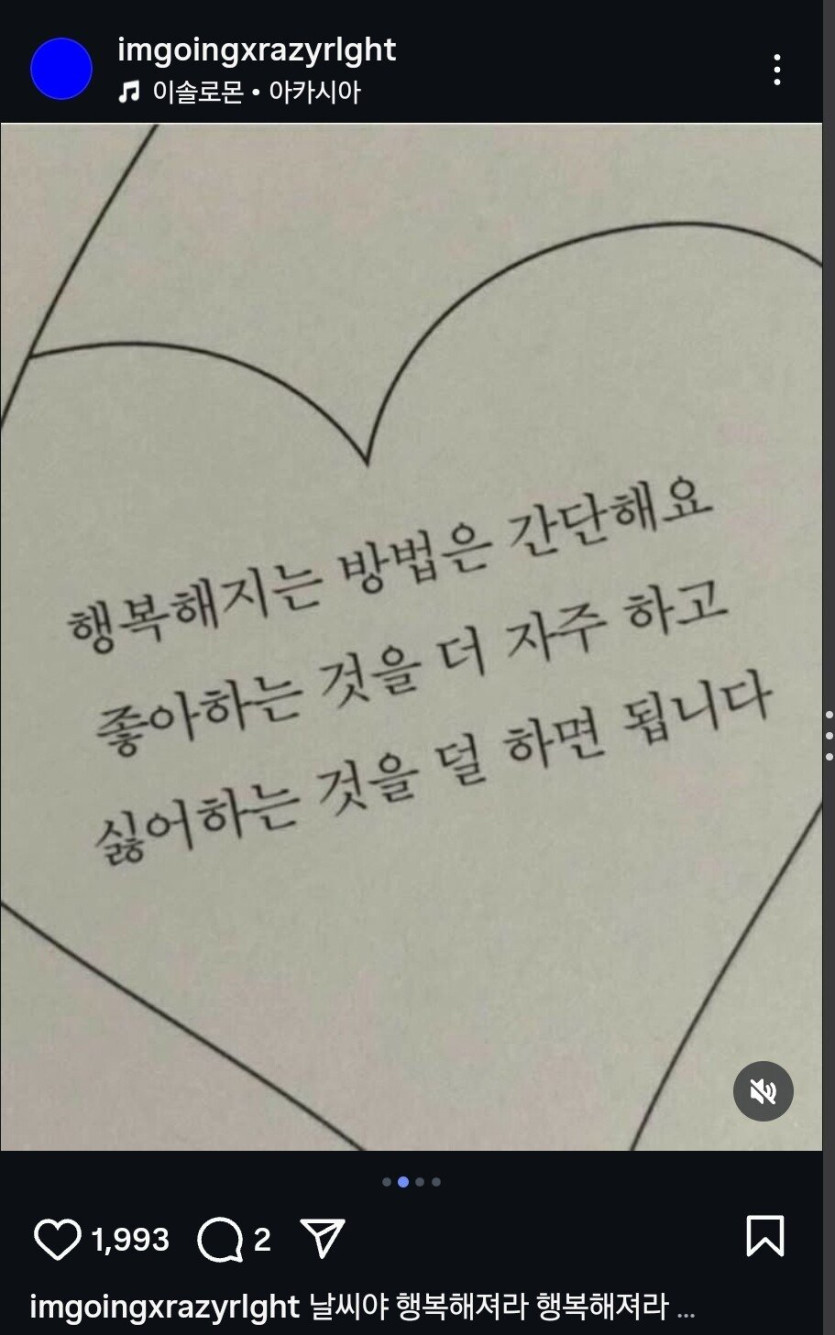 imgoingxrazyrlght
이솔로몬 • 아카시아
행복해지는 방법은 간단해요
좋아하는 것을 더 자주 하고
싫어하는 것을 덜 하면 됩니다
1,993 2
imgoingxrazyrlght 날씨야 행복해져라 행복해져라 ...